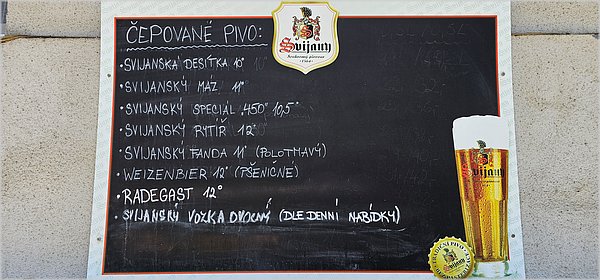 ČEPOVANÉ PIVO:
Svijany
Soukromý pivovar
1564
• SVIJANSKÁ DESÍTKA 10°
• SVIJANSKÝ MÁZ 11°
• SVIJANSKÝ SPECIÁL „450" 10,5°
• SVIJANSKÝ RYTÍŘ 12°
• SVIJANSKÝ FANDA 11° (POLOTMAVÝ)
• WEIZENBIER 12° (PŠENIČNÉ)
• RADEGAST 12°
• SVIJANSKÝ VOZKA OVOCNÝ (DLE DENNÍ NABÍDKY)
Svijany